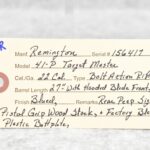 R
Maker Remington Serial # 156417
Model 41-P Target Master
Cal./Ga. 22 Cal. Type Bolt Action Rifle
Barrel Length 27" With Hooded Blade Front,
Finish Blued, Rear Peep Sight
Pistol Grip Wood Stock, Factory
Plastic Buttplate,